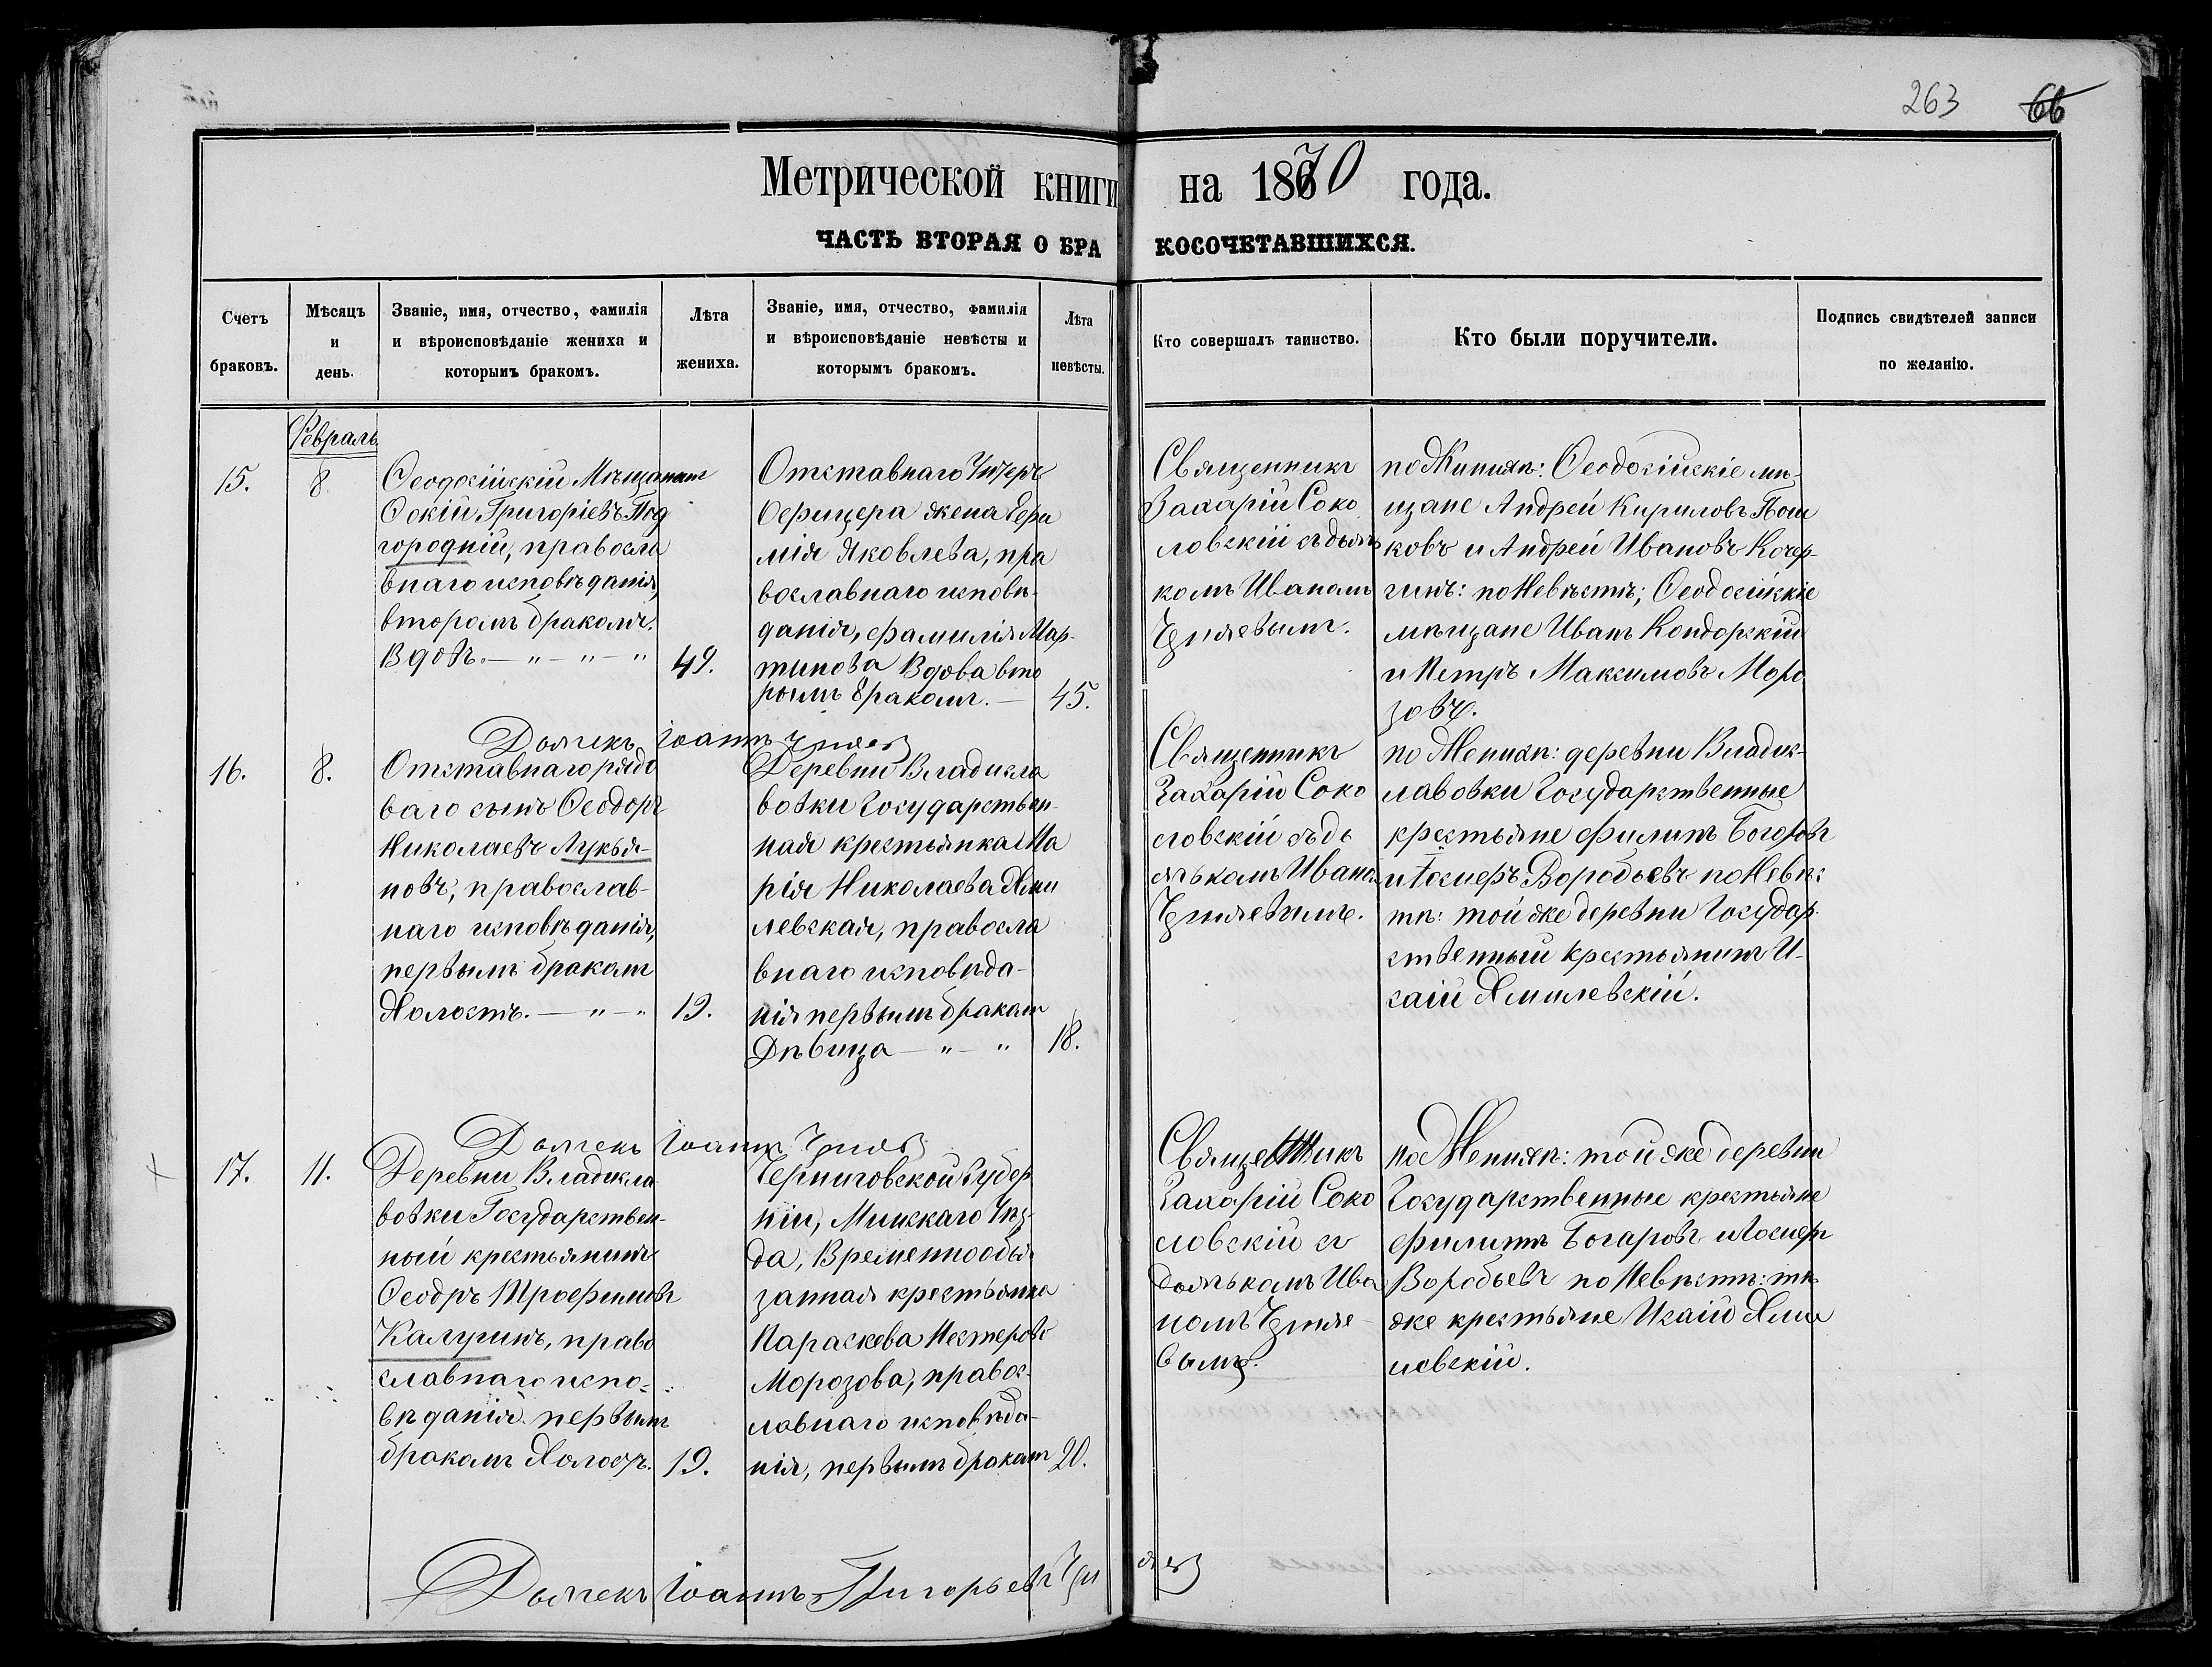 263 66
Метрической книги на 1870 года.
ЧАСТЬ ВТОРАЯ О БРАКОСОЧЕТАВШИХСЯ.
Счетъ браковъ.
Мѣсяцъ и день.
Званіе, имя, отчество, фамилія и вѣроисповѣданіе жениха и которымъ бракомъ.
Лѣта жениха.
Званіе, имя, отчество, фамилія и вѣроисповѣданіе невѣсты и которымъ бракомъ.
Лѣта невѣсты.
Кто совершалъ таинство.
Кто были поручители.
Подпись свидѣтелей записи по желанію.
Февраль
15.
8
Ѳеодосійскій Мѣщанинъ
Ѳокій Григоріевъ Под
городній, правосла
внаго исповѣданія,
вторымъ бракомъ.
Вдовъ. — " — " — "
49.
Отставнаго Унтеръ
Офицера жена Ефи
мія Яковлева, пра
вославнаго исповѣ-
данія, фамилія Мар-
тинова Вдова вто
рымъ бракомъ. —
45.
Священникъ
Захарій Соко
ловскій съ дьяч
комъ Иваномъ
по Жинихѣ: Ѳеодосійскіе мѣ-
щане Андрей Кириловъ
ковъ и Андрей Ивановъ Кочер-
гинъ: по Невѣстѣ; Ѳеодосійскіе
мѣщане Иванъ Кондорскій
и Петръ Максимовъ Моро
зовъ.
Дьячекъ Іоаннъ
16.
8.
Отставнаго рядо
ваго сынъ Ѳеодоръ
Николаевъ Лукья-
новъ, православ-
наго исповѣданія,
первымъ бракомъ
Холостъ. — " — "
19.
Деревни Владисла
вовки Государствен-
ная крестьянка Ма
рія Николаева Хми
левская, правосла
внаго исповѣда-
нія первымъ бракомъ
Дѣвица — " — "
18.
Священникъ
Захарій Соко
ловскій съ дь
ячькомъ Ивано
по Женихѣ: деревни Владис-
лавовки Государственные
крестьяне Филипъ Богаровъ
и Іосифъ Воробьевъ по Невѣс
тѣ: той же деревни Государ-
ственный крестьянинъ И-
саій Хмилевскій.
Дьячекъ Іоаннъ
17.
11.
Деревни Владисла
вовки Государствен-
ный крестьянинъ
Ѳеодръ Трофимовъ
Калугинъ, право
славнаго испо-
вѣданія первымъ
бракомъ Холостъ.
19.
Черниговской Губер
ніи, Уѣз-
да, Временнообя
занная крестьянка
Параскева Нестерова
Морозова, правос-
лавнаго исповѣда-
нія, первымъ бракомъ
20.
Священникъ
Захарій Соко
ловскій съ
дьячькомъ Ива
номъ
вымъ.
по Женихѣ: той же деревни
Государственные крестьяне
Филипъ Богаровъ и Іосифъ
Воробьевъ по Невѣстѣ: тѣ
же крестьяне Исаій Хми
левскій.
Дьячекъ Іоаннъ Григорьевъ